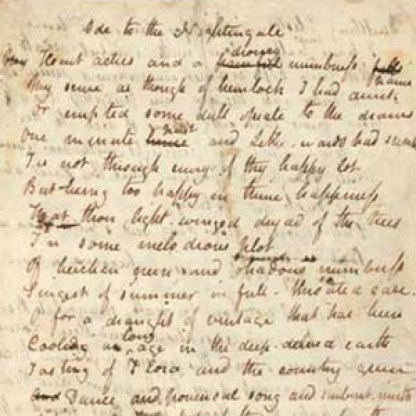 Ode to the Nightingale
drowsy
My Heart aches and a painful numbness falls
pains
My sense as though of hemlock I had drunk
Or emptied some dull opiate to the drains
past
One minute hence and Lethe wards had sunk
Tis not through envy of thy happy lot
But being too happy in thine happiness
That thou light winged dryad of the trees
In some melodious plot
Of beechen green and shadows numberless
Singest of summer in full-throated ease.
O for a draught of vintage that has been
long
Cooling an age in the deep-delved earth
Tasting of Flora and the country green
And Dance, and provencal song and sunburnt mirth